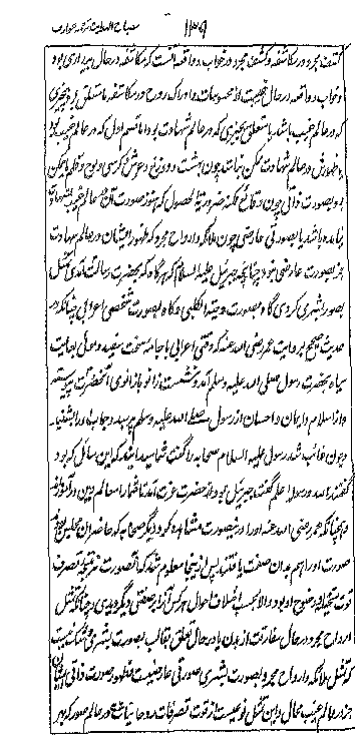 مصباح الهدایت ترجمه عوارف
۱۳۹
کشف مجرد در مکاشفه و کشف مجرد در خواب و واقعه آنست که مکاشفه در حال بیداری بود
و خواب و واقعه در حال غیبت از محسوسات و ادراک روح در مکاشفه یا متعلق بود بچیزی
که در عالم غیب باشد یا متعلق بچیزی که در عالم شهادت بود اما قسم اول که در عالم غیب بود
یا ظهورش در عالم شهادت ممکن نباشد چون بهشت و دوزخ و عرش و کرسی و لوح و قلم یا ممکن
بود بصورت ذاتی چون وقائع ممکنه ضروریة الحصول که هنوز صورت آن از عالم غیب بشهادت
نیامده باشد یا بصورتی عارضی چون ملائکه و ارواح مجرد که ظهور ایشان در عالم شهادت
جز بصورت عارضی نبود چنانکه جبرئیل علیه السلام که هرگاه که بحضرت رسالت آمدی تمثل
بصورت بشری کردی گاه بصورت دحیة الکلبی و گاه بصورت شخصی اعرابی چنانکه در
حدیث صحیح بروایت عمر رضی الله عنه که وقتی اعرابی با جامه سخت سفید و موئی بغایت
سیاه بحضرت رسول صلی الله علیه وسلم آمد و بنشست زانو بازانوی آنحضرت پیوسته
و از اسلام و ایمان و احسان از رسول صلی الله علیه وسلم پرسید و جواب او را بشنید
و چون غائب شد رسول علیه السلام صحابه را گفت شناسید اینکه این سائل که بود
گفتند الله و رسوله اعلم گفت جبرئیل بود از حضرت عزت آمد تا شما را معالم دین در آموزد
و چنانکه عمر رضی الله عنه او را در ینصورت مشاهده کرد دیگر صحابه که حاضر آن مجلس بودند
صورت او را هم بدان صفت یافتند پس از ینجا معلوم شد که آنصورت نه نتیجه تصرف
قوت متخیله و بود والا بحسب اختلاف احوال هر کس آنرا بر صفتی دیگر دیدی و چنانکه تمثل
ارواح مجرد در حال مفارقت از بدن یا در حال تعلق بقالب بصورت بشری ممکن نیست
که تمثل ملائکه و ارواح مجرد بصورت بشری صورتی عارضیست و ظهور صورت ذاتی ایشان
جز در عالم غیب محال و این تمثل نوعیست از قوت تصرفات روحانیات در عالم صور که بهر